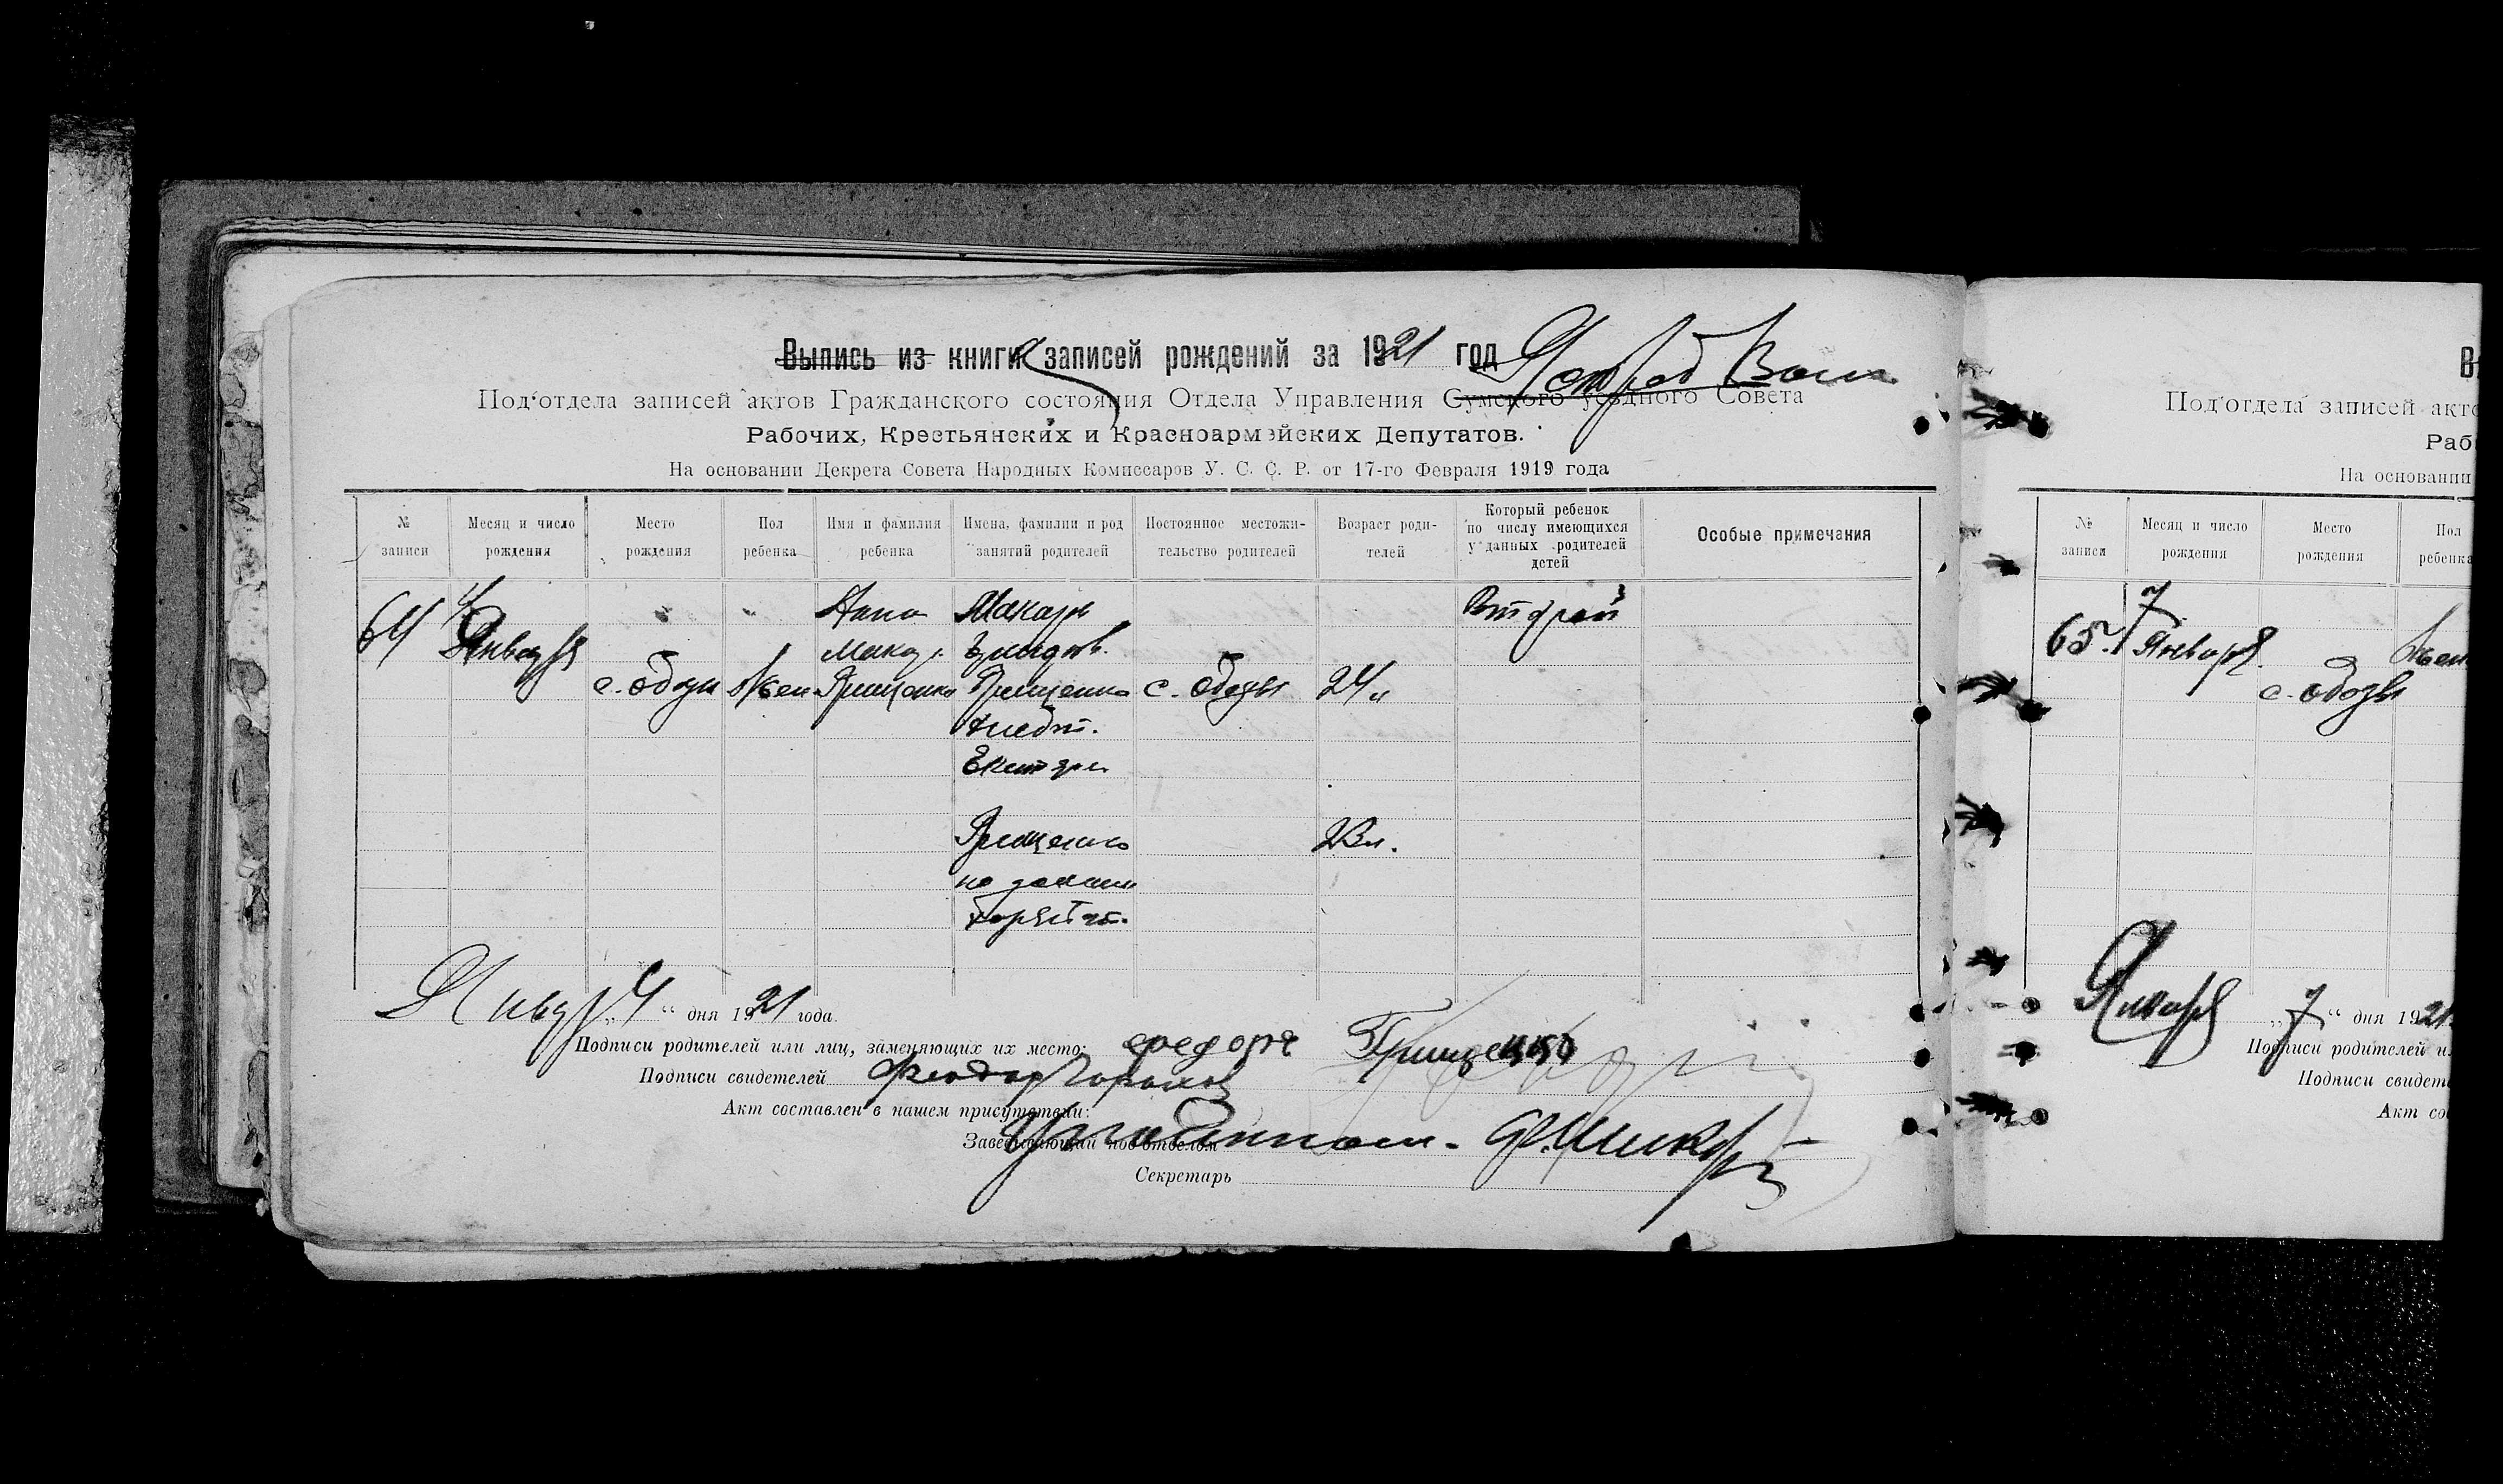 Выпись из книги записей рождений за 1921 год
Под'отдела записей актов Гражданского состояния Отдела Управления Сумского уездного Совета
Рабочих, Крестьянских и Красноармейских Депутатов.
На основании Декрета Совета Народных Комиссаров У. С. С. Р. от 17-го Февраля 1919 года
№ записи
Месяц и число рождения
Место рождения
Пол ребенка
Имя и фамилия ребенка
Имена, фамилии и род занятий родителей
Постоянное местожительство родителей
Возраст родителей
Который ребенок по числу имеющихся у данных родителей детей
Особые примечания
64
4
Января
с. Обозы
Жен
Анна
Грищенко
Макар
Грищенко
с. Обозы
24 л
Второй
Грищенко
23 л.
Январ. „4“ дня 1921 года.
Подписи родителей или лиц, заменяющих их место: Федоръ Грищенко
Подписи свидетелей Феодор
Акт составлен в нашем присутствии:
Заведывающий подотделом
Секретарь
В
Под'отдела записей акто
Раб
На основании
№ записи
Месяц и число рождения
Место рождения
Пол ребенка
65.
7
Января.
с. Обозы
Жен
Января „7“ дня 1921
Подписи родителей и
Подписи свидет
Акт со